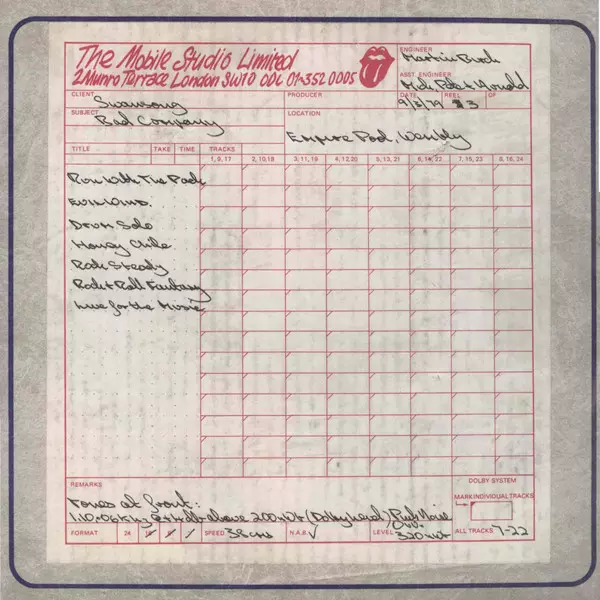 The Mobile Studio Limited
2 Munro Terrace London SW10 0DL 01-352 0005
ENGINEER
Martin Birch
ASST. ENGINEER
Mick
CLIENT
Swansong
PRODUCER
DATE
9/3/79
REEL
3
OF
SUBJECT
Bad Company
LOCATION
Empire Pool, Wembly
TITLE TAKE TIME TRACKS
1, 9, 17 2, 10, 18 3, 11, 19 4, 12, 20 5, 13, 21 6, 14, 22 7, 15, 23 8, 16, 24
Run With The Pack
Evil Wind.
Drum Solo
Honey Chile
Rock Steady
Rock + Roll Fantasy
Live for the Music
REMARKS
DOLBY SYSTEM
Tones at front:
MARK INDIVIDUAL TRACKS
above 200nwt (Dolby level) Pink Noise
0vu=
FORMAT 24 16 8 4 SPEED 38 cms N.A.B. ✓ LEVEL 320nwt ALL TRACKS 7-22